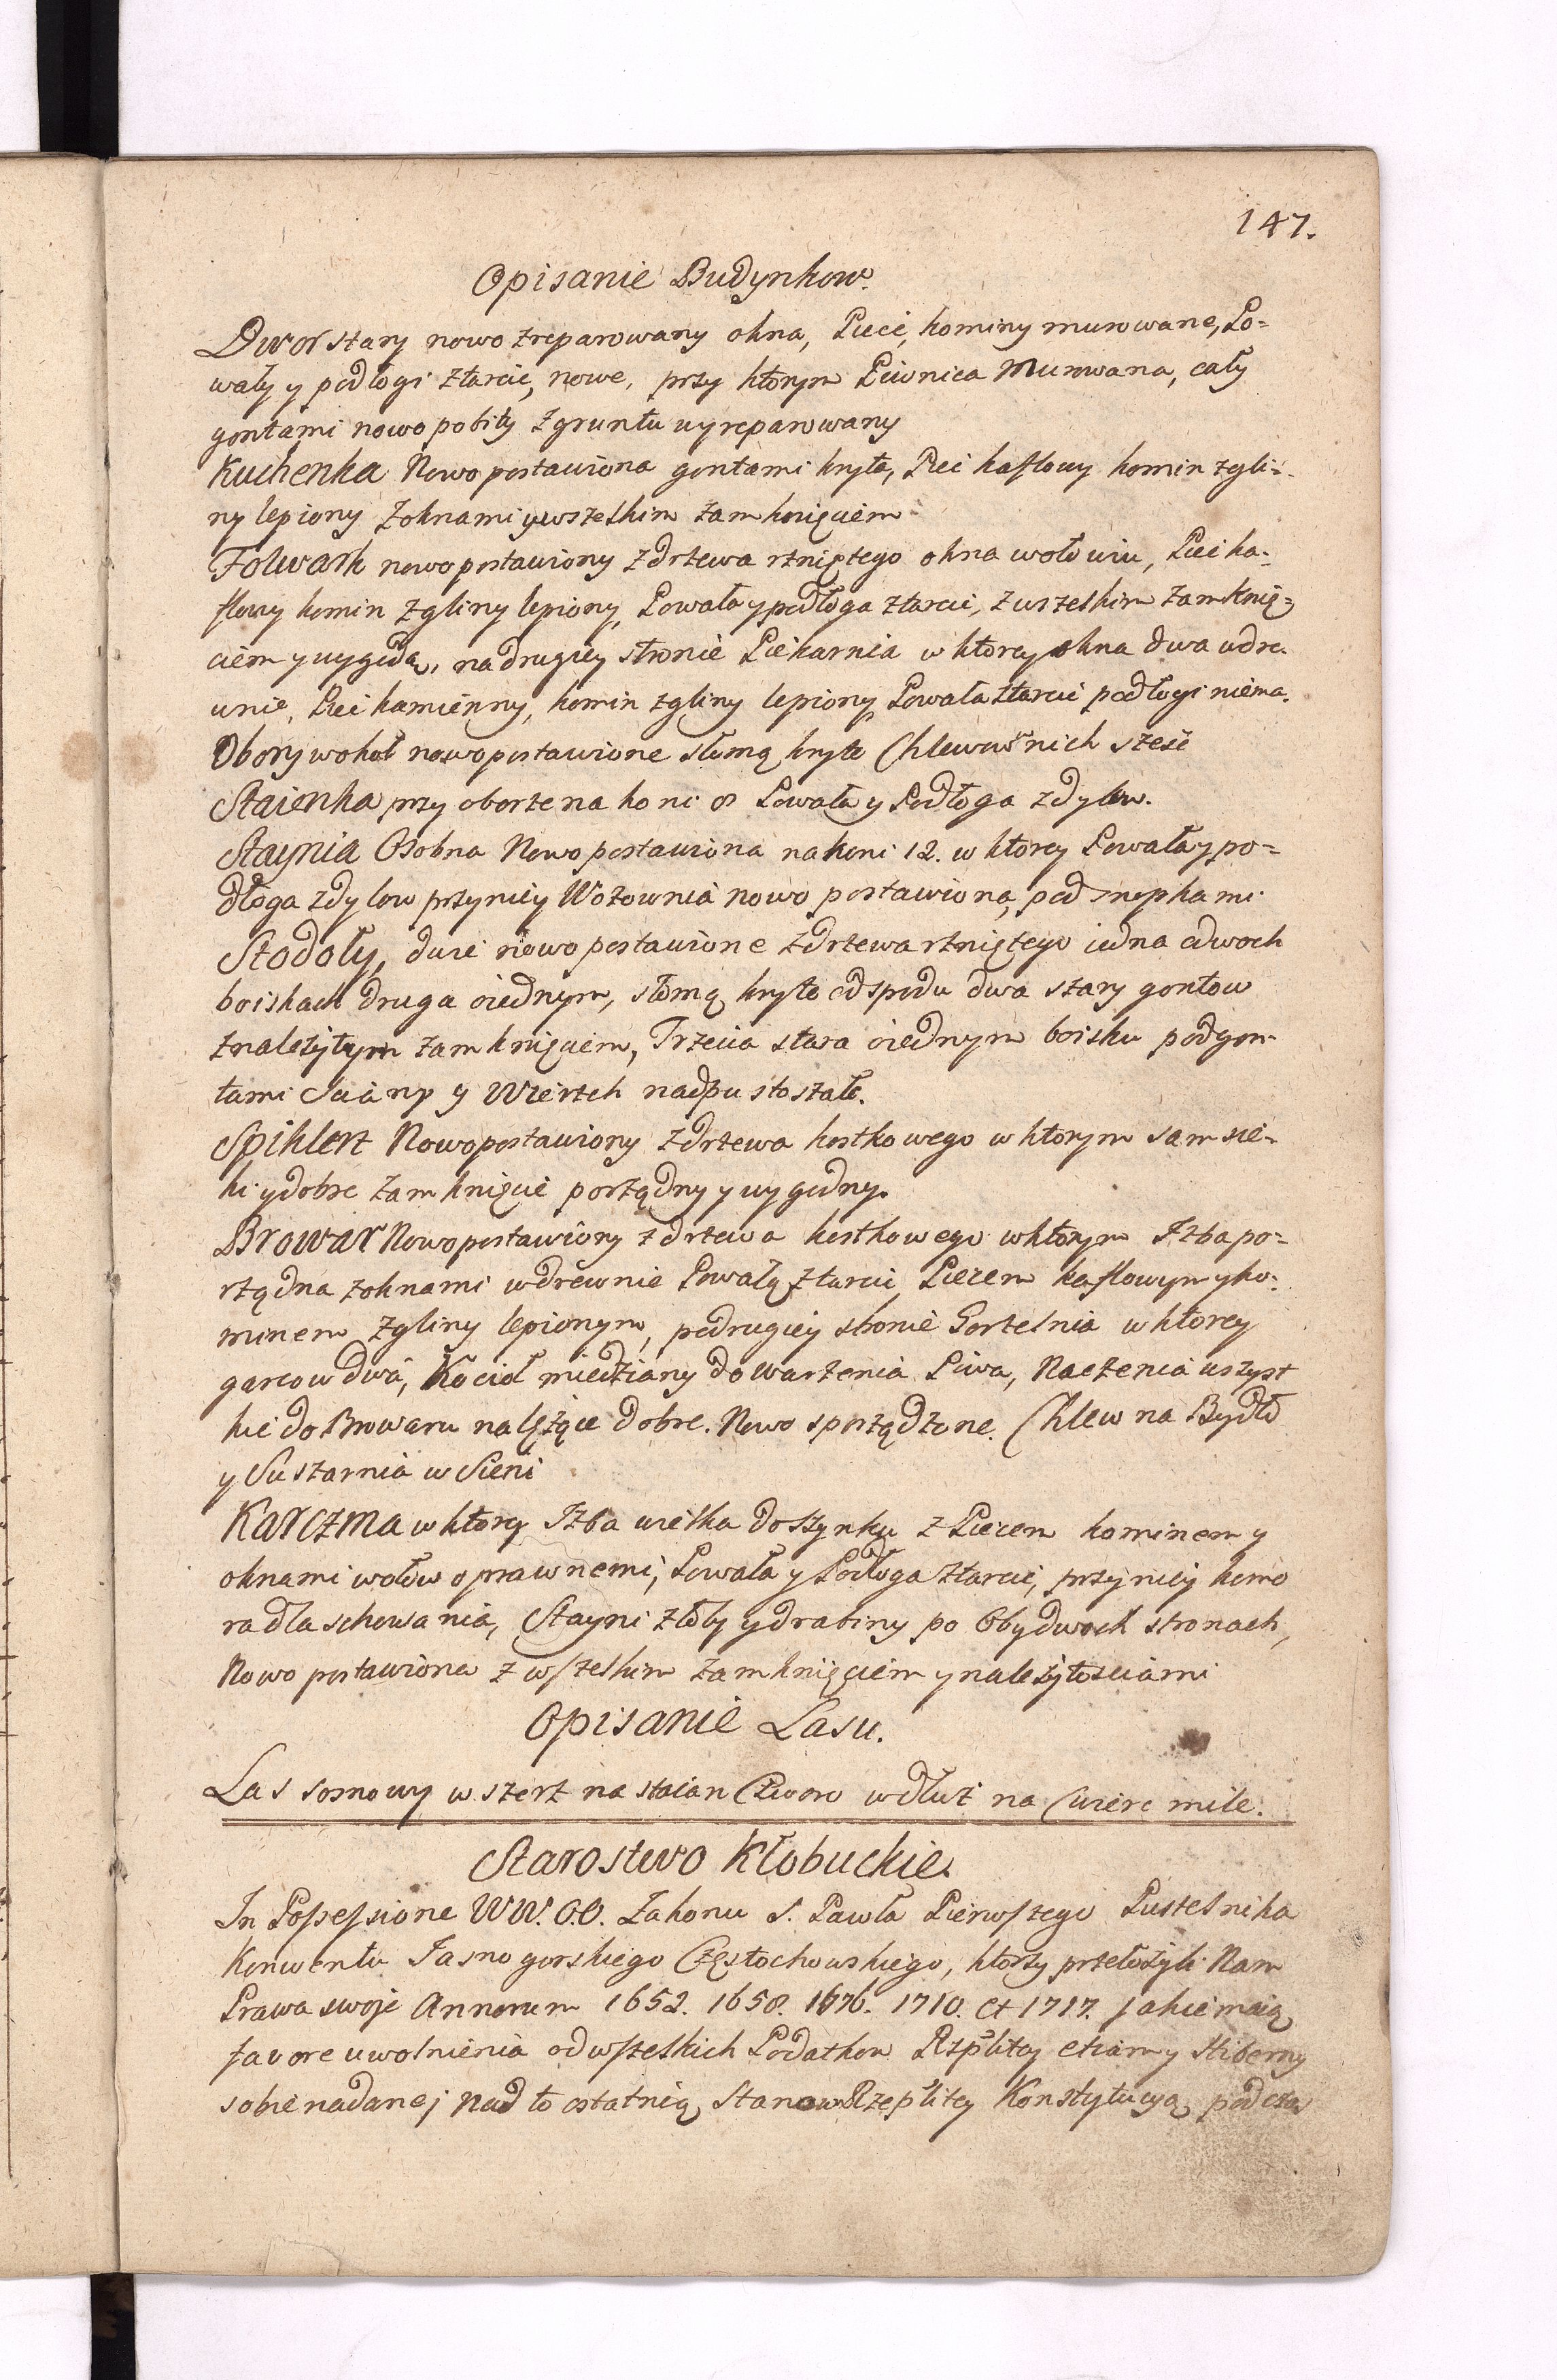 147.
Opisanie Budynkow.
Dwor stary nowo zreparowany okna, Piece, kominy murowane, Po=
wały y podłogi z tarcic, nowe, przy ktorym Piwnica Murowana, cały
gontami nowo pobity z gruntu wyreparowany
Kuchenka Nowo postawiona gontami kryta, Piec kaflowy komin z gli=
ny lepiony z oknami y wszelkim zamknięciem
Folwark nowo postawiony z drzewa rzniętego okna w ołowiu, Piec ka=
flowy komin z gliny lepiony, Powała y podłoga z tarcic, z wszelkim zamknię=
ciem y wygodą, na drugiey stronie Piekarnia w ktorey okna dwa w dre=
wnie, Piec kamienny, komin z gliny lepiony Powała z tarcic podłogi niema.
Obory wokoł nowo postawione słomą kryte Chlewow w nich sześć
Staienka przy oborze na koni 8 Powała y Podłoga z dylow.
Staynia Osobna Nowo postawiona na koni 12. w ktorey Powała y po=
dłoga z dylow przy niey Wozownia nowo postawiona, pod snopkami
Stodoły, dwie nowo postawione z drzewa rzniętego iedna o dwoch
boiskach druga o iednym, słomą kryte od spodu dwa szary gontow
z należytym zamknięciem, Trzecia stara o iednym boisku pod gon=
tami Sciany y Wierzch nadpustoszałe.
Spiklerz Nowo postawiony z drzewa kostkowego w ktorym sam sie=
ki y dobre zamknięcie porządny y wygodny.
Browar Nowo postawiony z drzewa kostkowego w ktorym Izba po=
rządna z oknami w drewnie Powałą z tarcic, Piecem kaflowym y ko=
minem z gliny lepionym, po drugiey stronie Gorzelnia w ktorey
garcow dwa, Kocioł miedziany do warzenia Piwa, Naczenia wszyst
kie do Browaru nalężące dobre. Nowo sporządzone. Chlew na Bydło
y Suszarnia w Sieni
Karczma w ktorey Izba wielka do szynku z Piecem kominem y
oknami w ołow oprawnemi, Powała y Podłoga z tarcic, przy niey komo
ra dla schowania, Stayni z łoby y drabiny po Obydwoch stronach,
Nowo postawiona z wszelkim zamknięciem y należytosciami
Opisanie Lasu.
Las sosnowy w szerz na staian Czworo w dłuż na Cwierc mile.
Starostwo Kłobuckie.
In Possessione WW. O.O. Zakonu S. Pawła Pierwszego Pustelnika
Konwentu Jasnogorskiego Częstochowskiego, ktorzy przełożyli Nam
Prawa swoje Annorum 1652. 1658. 1676. 1710. et 1717. jakie maią
favore uwolnienia od wszelkich Podatkow Rzplitey etiam y Hiberny
sobie nadanej Nad to ostatnią Stanow Rzeplitey Konstytucyą podczas